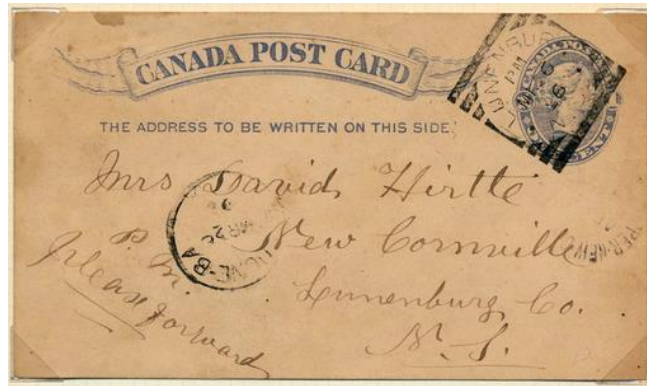 CANADA POST CARD
THE ADDRESS TO BE WRITTEN ON THIS SIDE.
LUNENBURG
PM
CANADA POST
CENT
Mrs David Hirtle
New Cornville
Lunenburg Co.
N. S.
P. M.
please forward